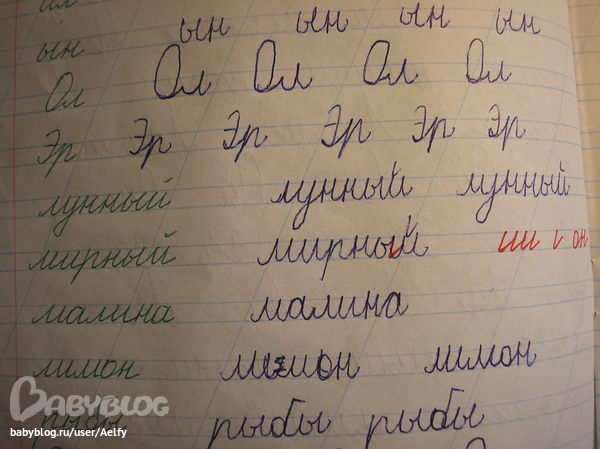 ын ын ын ын ын
Ол Ол Ол Ол Ол
Эр Эр Эр Эр Эр Эр
лунный лунный лунный
мирный мирный ии і он
малина малина
лимон лимон лимон
рыбы рыбы рыбы
BABYBLOG
babyblog.ru/user/Aelfy